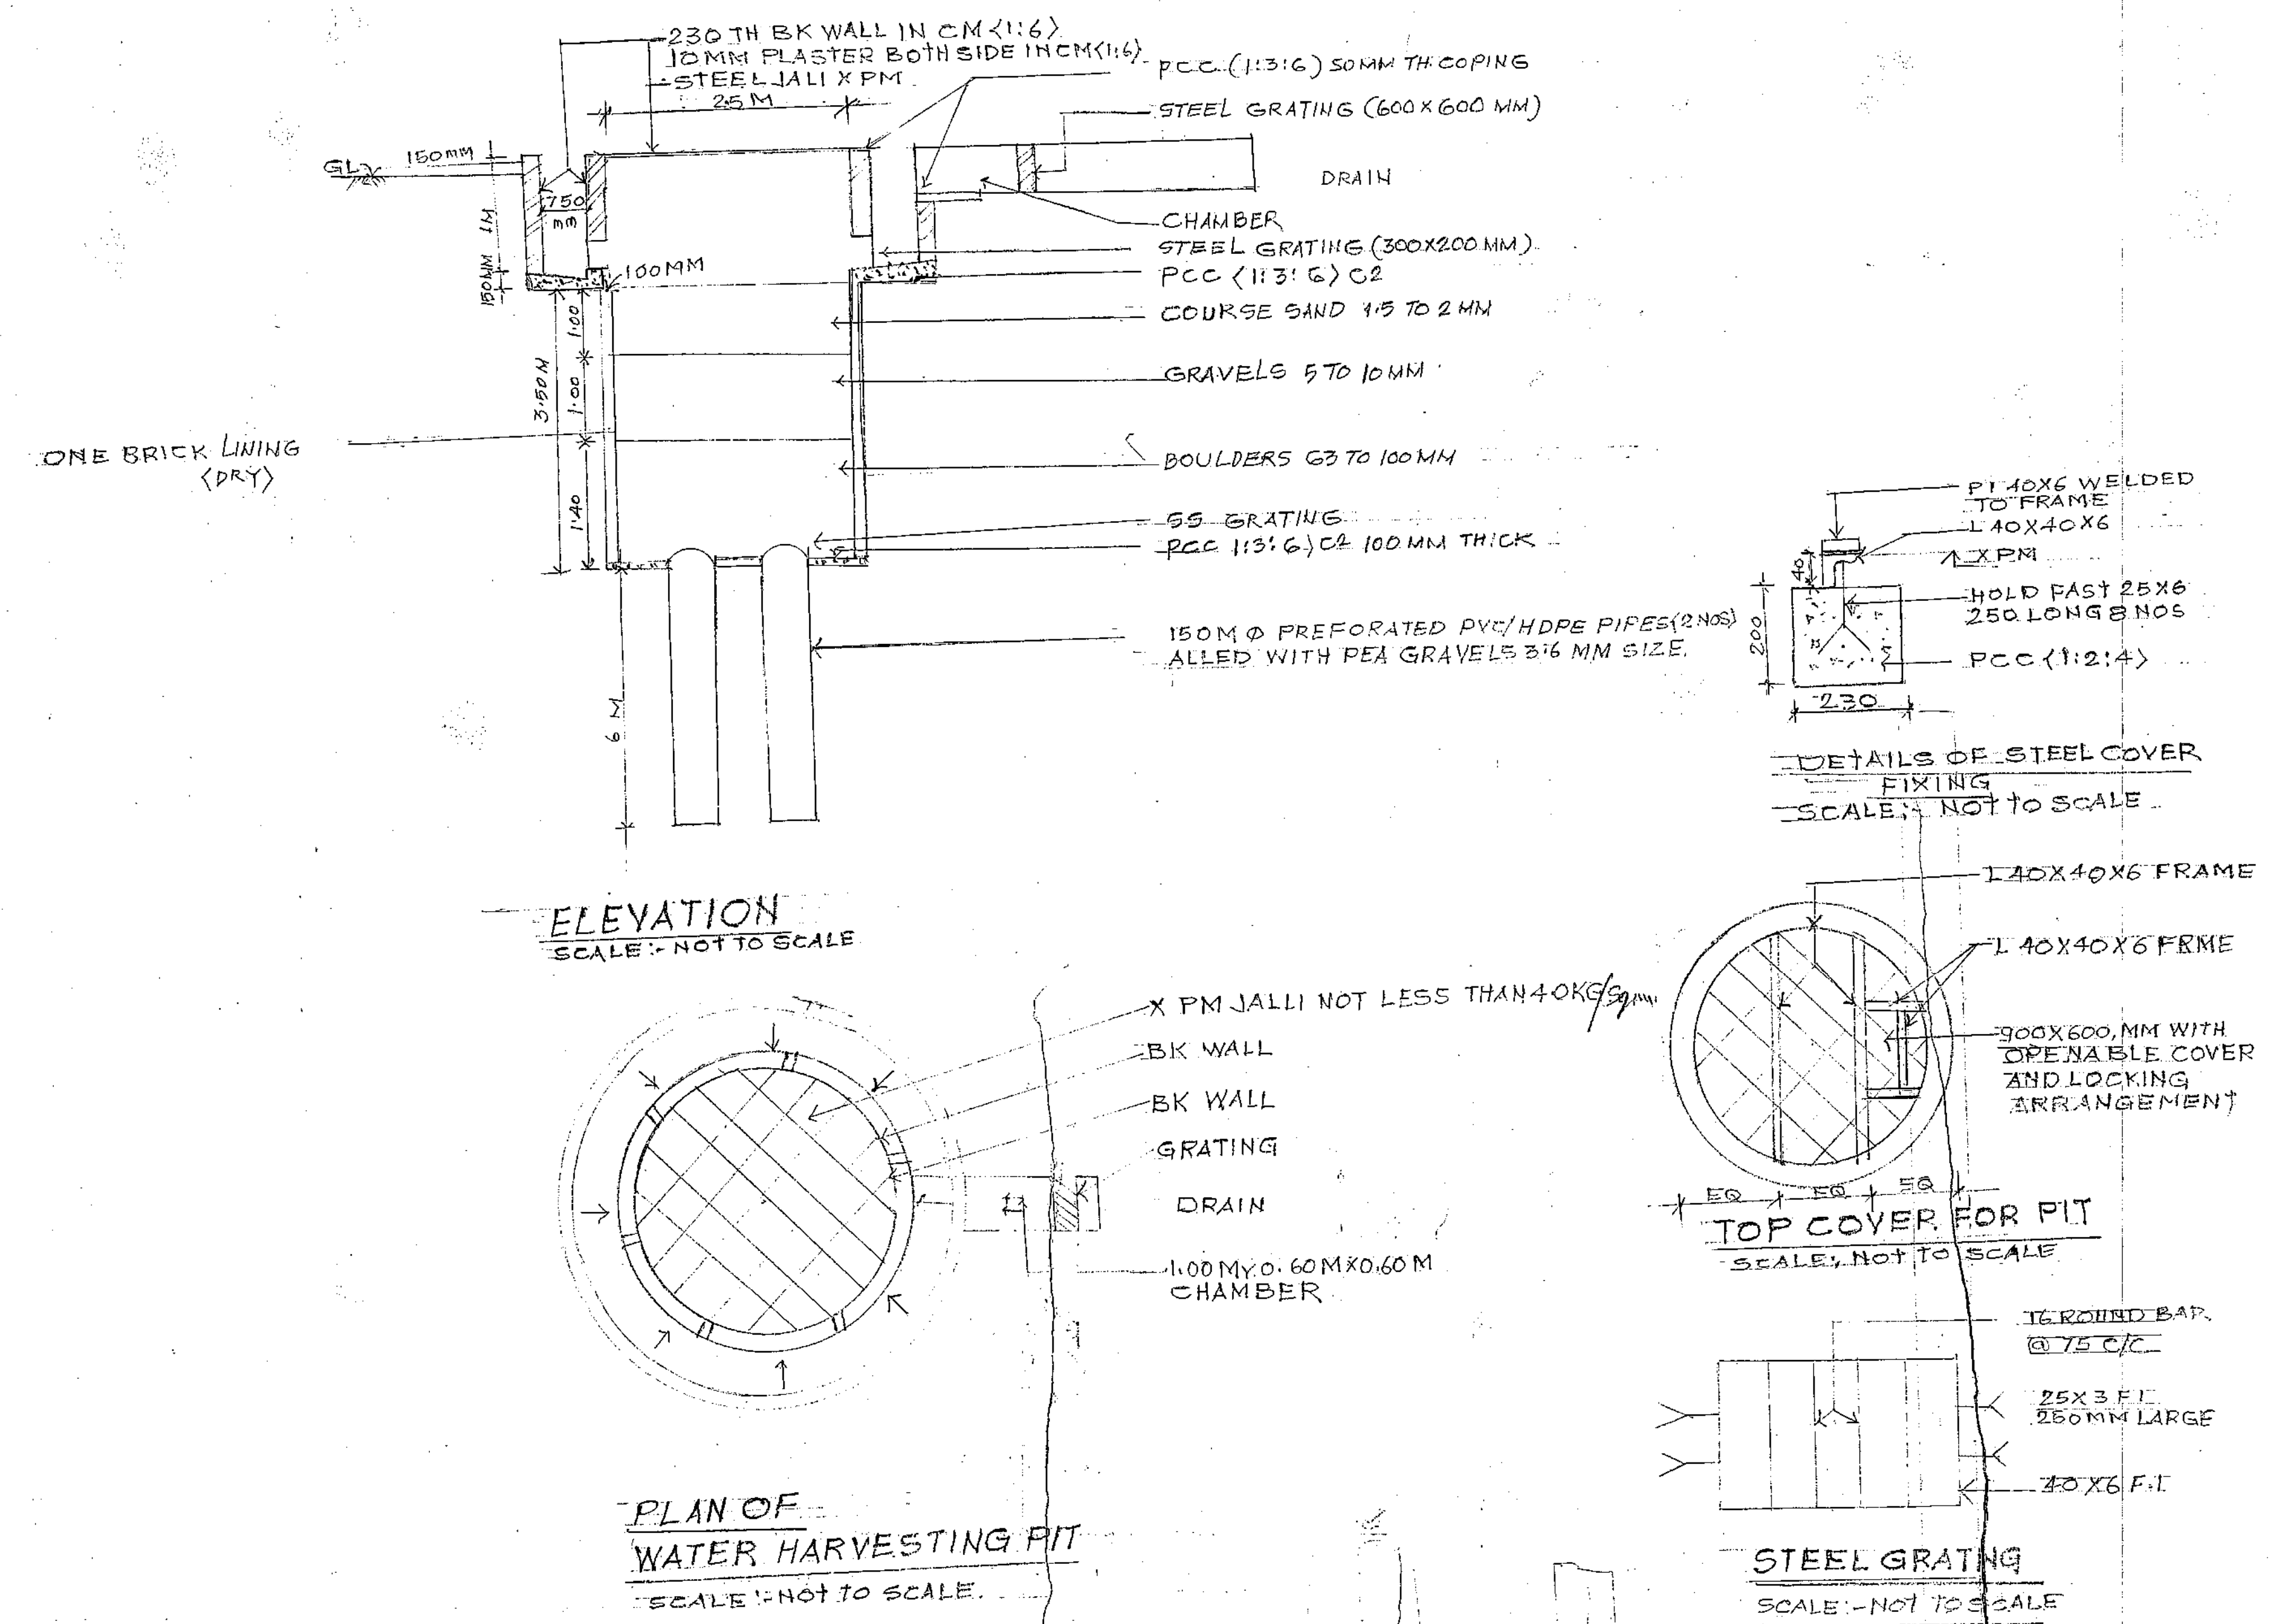 230 TH BK WALL IN CM <1:6>
10MM PLASTER BOTH SIDE IN CM <1:6>
STEEL JALI X PM
2.5 M
PCC (1:3:6) 50MM TH COPING
STEEL GRATING (600 X 600 MM)
GL
150MM
DRAIN
750
mm
1M
CHAMBER
STEEL GRATING (300X200 MM)
100MM
150MM
PCC <1:3:6> C2
COURSE SAND 1.5 TO 2 MM
1.00
GRAVELS 5 TO 10 MM
3.50 M
1.00
ONE BRICK LINING
<DRY>
BOULDERS 63 TO 100 MM
1.40
SS GRATING
PCC 1:3:6) C2 100 MM THICK
150 M Φ PREFORATED PVC/HDPE PIPES (2 NOS)
ALLED WITH PEA GRAVELS 3:6 MM SIZE.
6 M
ELEVATION
SCALE:- NOT TO SCALE
P1 40X6 WELDED
TO FRAME
L 40X40X6
X PM
40
HOLD FAST 25X6
250 LONG 8 NOS
200
PCC <1:2:4>
230
DETAILS OF STEEL COVER
FIXING
SCALE:- NOT TO SCALE
L 40X40X6 FRAME
L 40X40X6 FRME
900X600, MM WITH
OPENABLE COVER
AND LOCKING
ARRANGEMENT
EQ EQ EQ
TOP COVER FOR PIT
SCALE:, NOT TO SCALE
X PM JALLI NOT LESS THAN 40KG/Sqm.
BK WALL
BK WALL
GRATING
DRAIN
1.00 M X 0.60 M X 0.60 M
CHAMBER
PLAN OF
WATER HARVESTING PIT
SCALE:- NOT TO SCALE.
16 ROUND BAR
@ 75 C/C
25X3 F.I.
250MM LARGE
40 X6 F.I.
STEEL GRATING
SCALE:- NOT TO SCALE